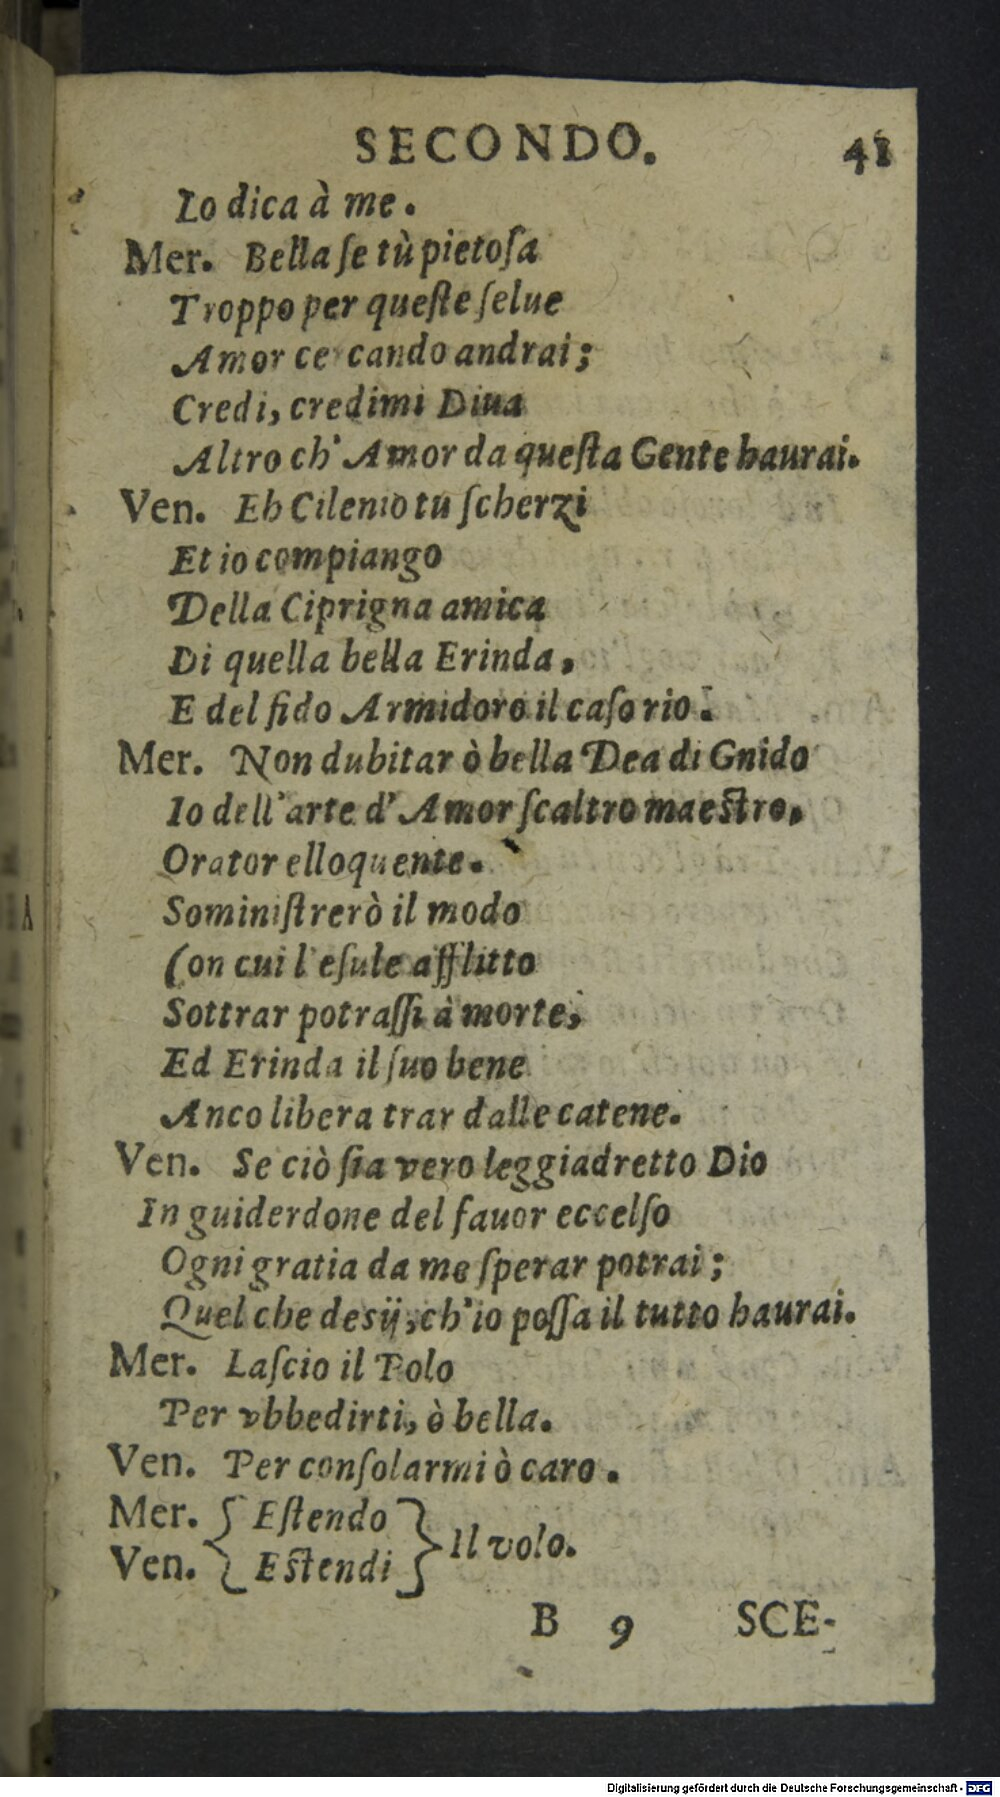 SECONDO. 41
Io dica à me.
Mer. Bella ſe tù pietoſa
Troppo per queſte ſelue
Amor cercando andrai;
Credi, credimi Diua
Altro ch' Amor da queſta Gente haurai.
Ven. Eh Cilenio tu ſcherzi
Et io compiango
Della Ciprigna amica
Di quella bella Erinda,
E del fido Armidoro il caſo rio.
Mer. Non dubitar ò bella Dea di Gnido
Io dell'arte d' Amor ſcaltro maeſtro,
Orator elloquente.
Sominiſtrerò il modo
Con cui l'eſule afflitto
Sottrar potraſſi à morte,
Ed Erinda il ſuo bene
Anco libera trar dalle catene.
Ven. Se ciò ſia vero leggiadretto Dio
In guiderdone del fauor eccelſo
Ogni gratia da me ſperar potrai;
Quel che desij, ch'io poſſa il tutto haurai.
Mer. Laſcio il Polo
Per vbbedirti, ò bella.
Ven. Per conſolarmi ò caro.
Mer. { Eſtendo }
Ven. { Eſtendi } Il volo.
B 9 SCE-
Digitalisierung gefördert durch die Deutsche Forschungsgemeinschaft - DFG